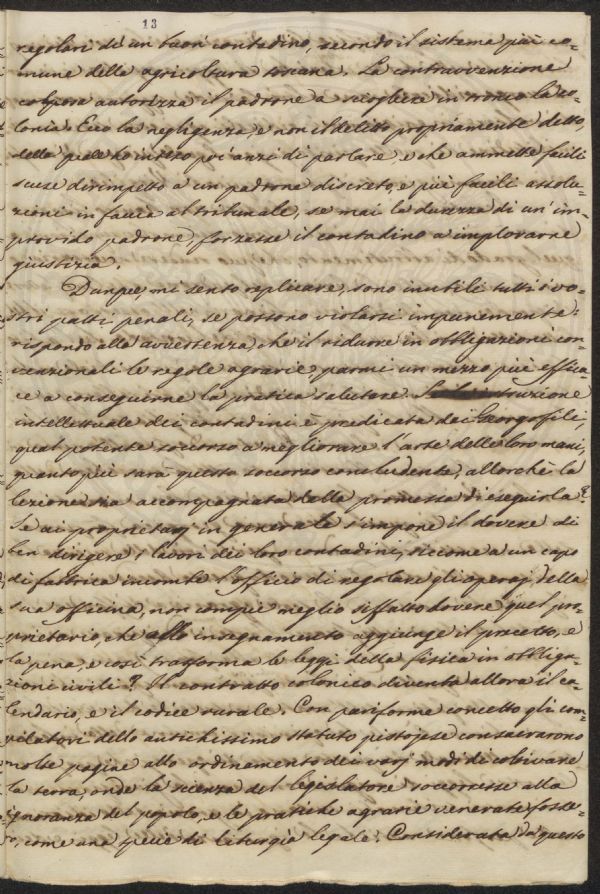 13
regolari di un buon contadino, secondo il sistema più co-
mune della agricoltura toscana. La contravvenzione
colposa autorizza il padrone a sciogliere in tronco la co-
lonia. Ecco la negligenza, e non il delitto propriamente detto,
della quale ho inteso poi anzi di parlare, e che ammette facili
scuse dirimpetto a un padrone discreto, e più facili assolu-
zioni in faccia al tribunale, se mai la durezza di un'im-
provido padrone, forzasse il contadino a implorarne
giustizia.
Dunque, mi sento replicare, sono inutili tutti i vo-
stri patti penali, se possono violarsi impunemente:
rispondo alla avvertenza, che il ridurre in obbligazioni con-
venzionali le regole agrarie, parmi un mezzo più effica-
ce a conseguirne la pratica salutare. istruzione
intellettuale dei contadini è predicata dai Georgofili,
qual potente soccorso a migliorare l'arte delle loro mani,
quanto più sarà questo soccorso concludente, allorchè la
lezione sia accompagnata dalla promessa di eseguirla?
Se ai proprietarj in generale s'impone il dovere di
ben dirigere i lavori dei loro contadini, siccome a un capo
di fabbrica incombe l'officio di regolare gli operaj della
sua officina, non compie meglio siffatto dovere quel pro-
prietario, che allo insegnamento aggiunge il precetto, e
la pena, e così trasforma le leggi della fisica in obbliga-
zioni civili? Il contratto colonico diventa allora il ca-
lendario, e il codice rurale. Con pariforme concetto gli com-
pilatori dello antichissimo statuto pistojese consacrarono
molte pagine allo ordinamento dei varj modi di coltivare
la terra, onde la scienza del legislatore soccorresse alla
ignoranza del popolo, e le pratiche agrarie venerate fosse-
ro, come una specie di liturgia legale. Considerata da questo